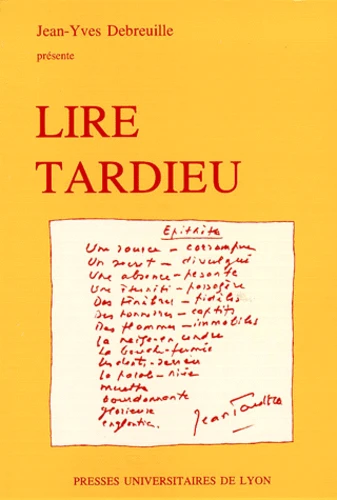 Jean-Yves Debreuille
présente
LIRE
TARDIEU
Epithètes
Une source – corrompue
Un secret – divulgué
Une absence – pesante
Une éternité – passagère
Des ténèbres – fidèles
Des tonnerres – captifs
Des flammes – immobiles
La neige en cendre
La bouche fermée
Les dents serrées
La parole niée
muette
bourdonnante
glorieuse
engloutie.
Jean Tardieu
PRESSES UNIVERSITAIRES DE LYON